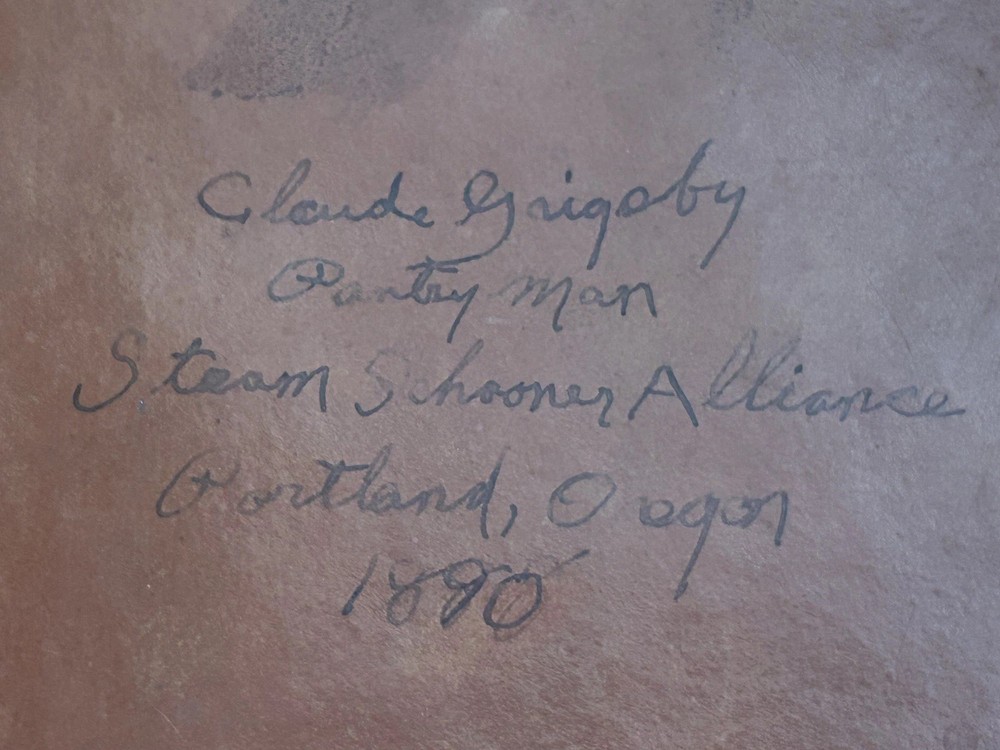 Claude Grigsby
Pantry Man
Steam Schooner Alliance
Portland, Oregon
1890